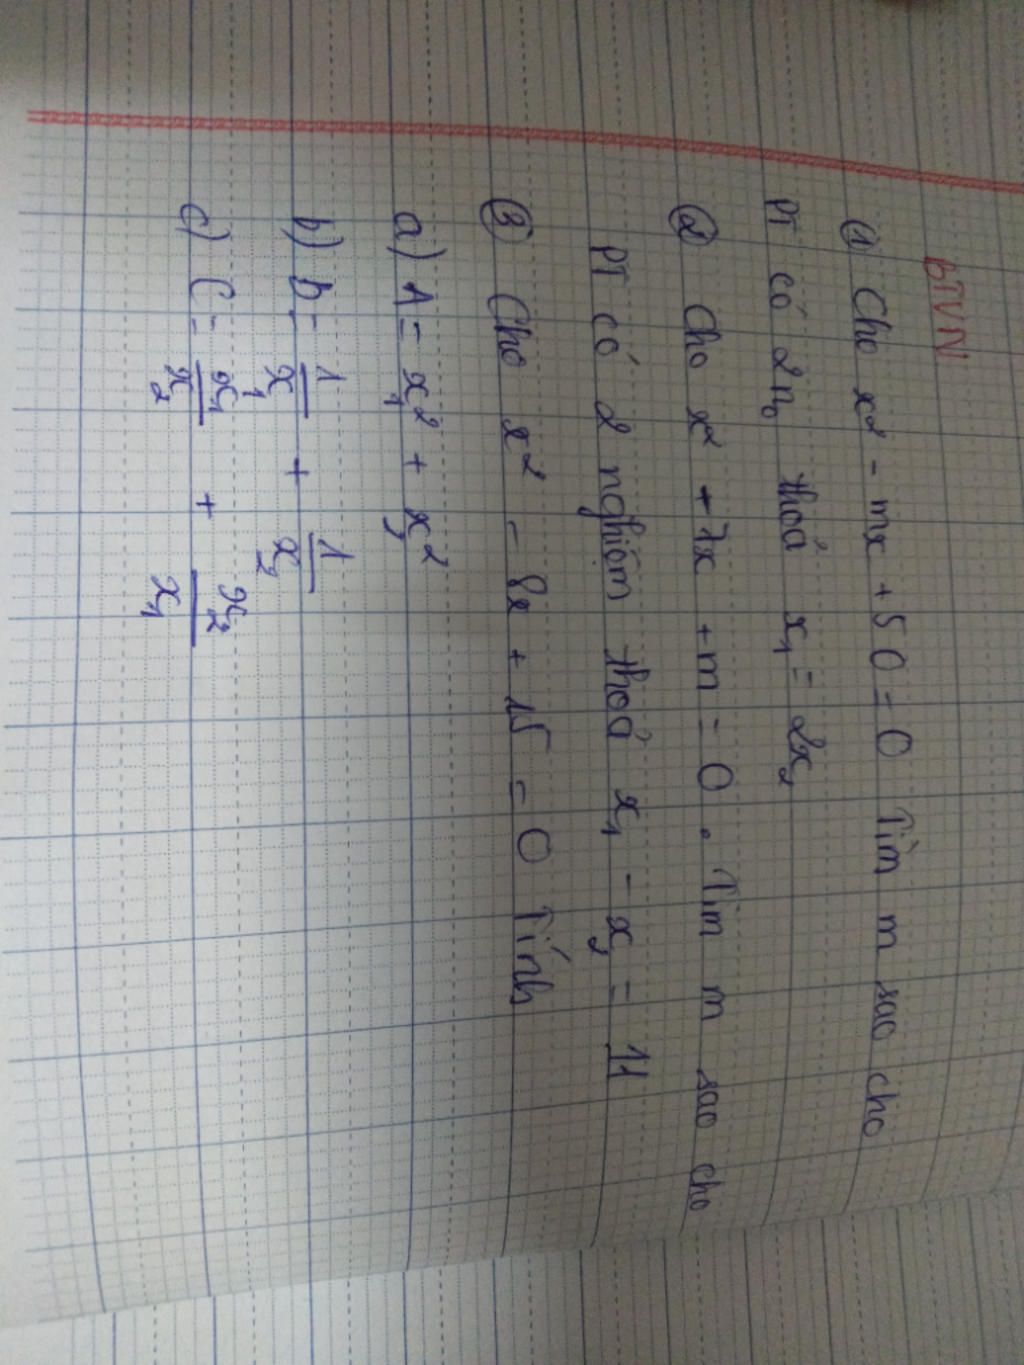 BTVN
① Cho x² - mx + 50 = 0 Tìm m sao cho
PT có 2 n₀ thoả x₁ = 2x₂
② Cho x² + 7x + m = 0. Tìm m sao cho
PT có 2 nghiệm thoả x₁ - x₂ = 11
③ Cho x² - 8x + 15 = 0 Tính
a) A = x₁² + x₂²
b) B = 1/x₁ + 1/x₂
c) C = x₁/x₂ + x₂/x₁